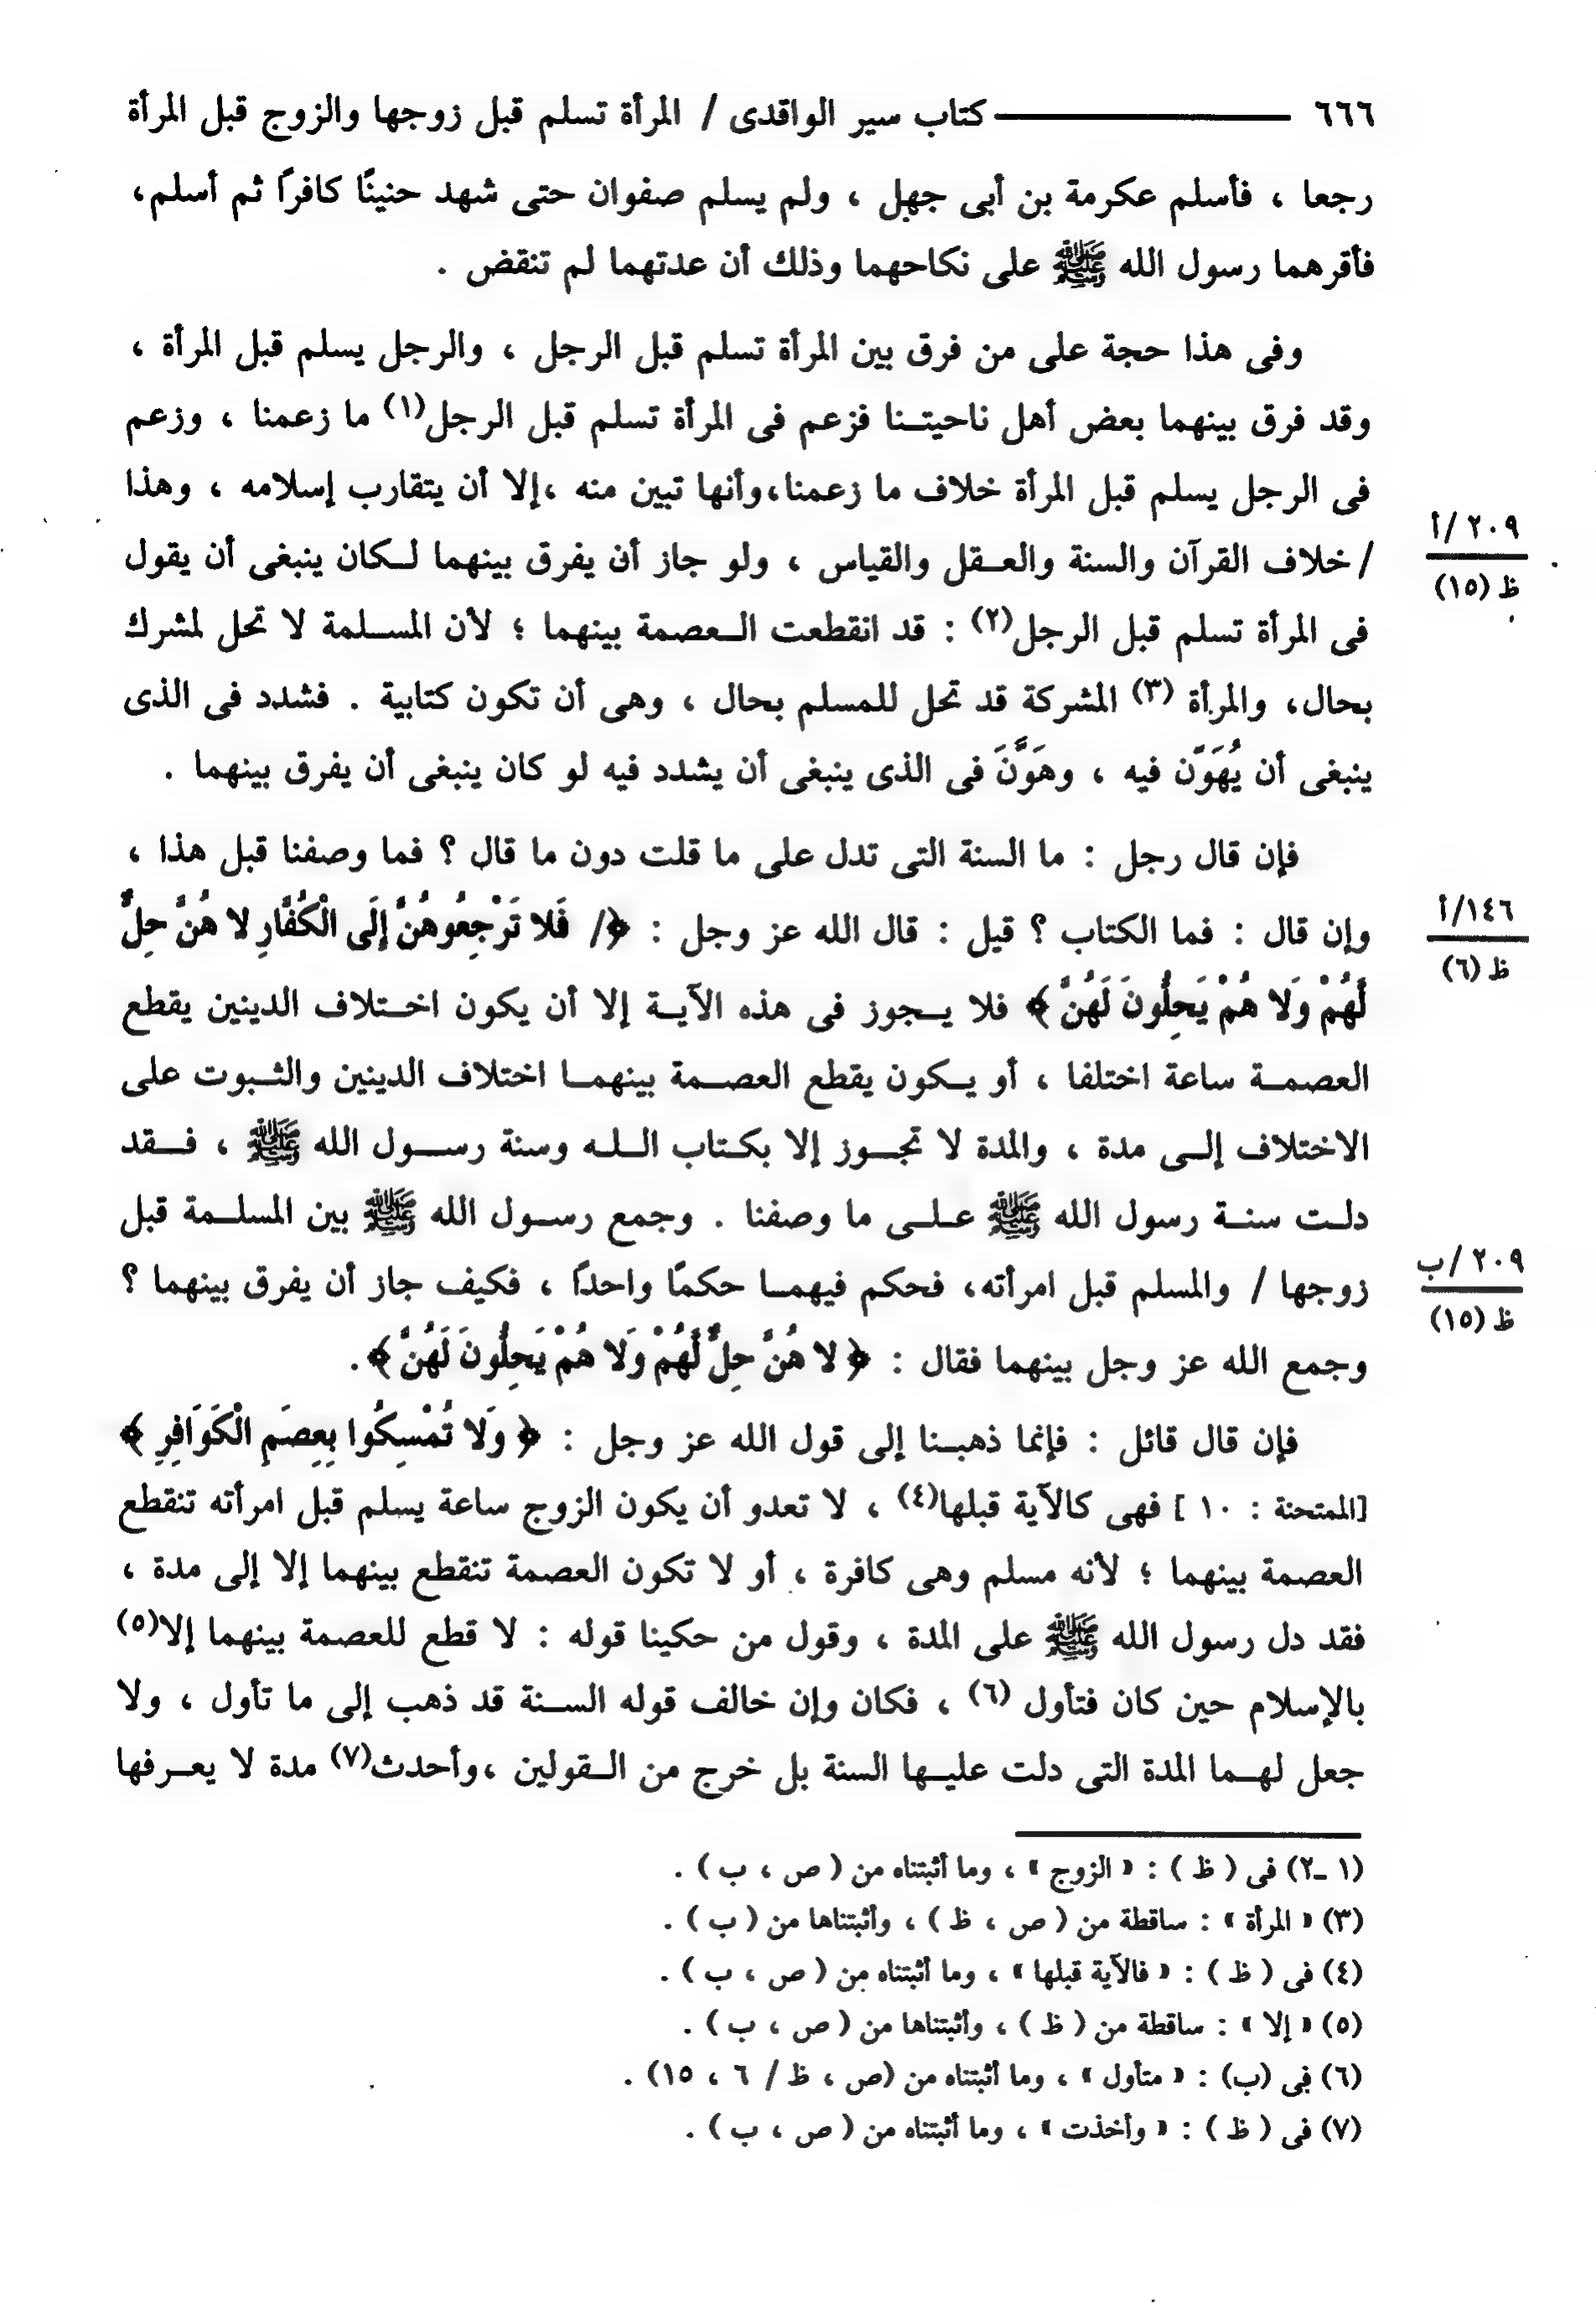 ٦٦٦ ــــــــــــ كتاب سير الواقدى / المرأة تسلم قبل زوجها والزوج قبل المرأة
رجعا ، فأسلم عكرمة بن أبى جهل ، ولم يسلم صفوان حتى شهد حنينًا كافرًا ثم أسلم،
فأقرهما رسول الله ﷺ على نكاحهما وذلك أن عدتهما لم تنقض .
وفى هذا حجة على من فرق بين المرأة تسلم قبل الرجل ، والرجل يسلم قبل المرأة ،
وقد فرق بينهما بعض أهل ناحيتنا فزعم فى المرأة تسلم قبل الرجل(١) ما زعمنا ، وزعم
فى الرجل يسلم قبل المرأة خلاف ما زعمنا،وأنها تبين منه ،إلا أن يتقارب إسلامه ، وهذا
/ خلاف القرآن والسنة والعقل والقياس ، ولو جاز أن يفرق بينهما لكان ينبغى أن يقول
٢٠٩ /أ
ظ (١٥)
فى المرأة تسلم قبل الرجل(٢) : قد انقطعت العصمة بينهما ؛ لأن المسلمة لا تحل لمشرك
بحال، والمرأة (٣) المشركة قد تحل للمسلم بحال ، وهى أن تكون كتابية . فشدد فى الذى
ينبغى أن يُهَوَّن فيه ، وهَوَّنَ فى الذى ينبغى أن يشدد فيه لو كان ينبغى أن يفرق بينهما .
فإن قال رجل : ما السنة التى تدل على ما قلت دون ما قال ؟ فما وصفنا قبل هذا ،
وإن قال : فما الكتاب ؟ قيل : قال الله عز وجل : ﴿/ فَلا تَرْجِعُوهُنَّ إِلَى الْكُفَّارِ لا هُنَّ حِلٌّ
١٤٦/أ
ظ (٦)
لَّهُمْ وَلا هُمْ يَحِلُّونَ لَهُنَّ ﴾ فلا يجوز فى هذه الآية إلا أن يكون اختلاف الدينين يقطع
العصمة ساعة اختلفا ، أو يكون يقطع العصمة بينهما اختلاف الدينين والثبوت على
الاختلاف إلى مدة ، والمدة لا تجوز إلا بكتاب الله وسنة رسول الله ﷺ ، فقد
دلت سنة رسول الله ﷺ على ما وصفنا . وجمع رسول الله ﷺ بين المسلمة قبل
زوجها / والمسلم قبل امرأته، فحكم فيهما حكمًا واحدًا ، فكيف جاز أن يفرق بينهما ؟
٢٠٩ /ب
ظ (١٥)
وجمع الله عز وجل بينهما فقال : ﴿ لا هُنَّ حِلٌّ لَّهُمْ وَلا هُمْ يَحِلُّونَ لَهُنَّ ﴾.
فإن قال قائل : فإنما ذهبنا إلى قول الله عز وجل : ﴿ وَلا تُمْسِكُوا بِعِصَمِ الْكَوَافِرِ ﴾
[الممتحنة : ١٠ ] فهى كالآية قبلها(٤) ، لا تعدو أن يكون الزوج ساعة يسلم قبل امرأته تنقطع
العصمة بينهما ؛ لأنه مسلم وهى كافرة ، أو لا تكون العصمة تنقطع بينهما إلا إلى مدة ،
فقد دل رسول الله ﷺ على المدة ، وقول من حكينا قوله : لا قطع للعصمة بينهما إلا(٥)
بالإسلام حين كان فتأول (٦) ، فكان وإن خالف قوله السنة قد ذهب إلى ما تأول ، ولا
جعل لهما المدة التى دلت عليها السنة بل خرج من القولين ،وأحدث(٧) مدة لا يعرفها
(١ ـ٢) فى ( ظ ) : « الزوج » ، وما أثبتناه من ( ص ، ب ) .
(٣) « المرأة » : ساقطة من ( ص ، ظ ) ، وأثبتناها من ( ب ) .
(٤) فى ( ظ ) : « فالآية قبلها » ، وما أثبتناه من ( ص ، ب ) .
(٥) « إلا » : ساقطة من ( ظ ) ، وأثبتناها من ( ص ، ب ) .
(٦) فى (ب) : « متأول » ، وما أثبتناه من (ص ، ظ / ٦ ، ١٥) .
(٧) فى ( ظ ) : « وأخذت » ، وما أثبتناه من ( ص ، ب ) .